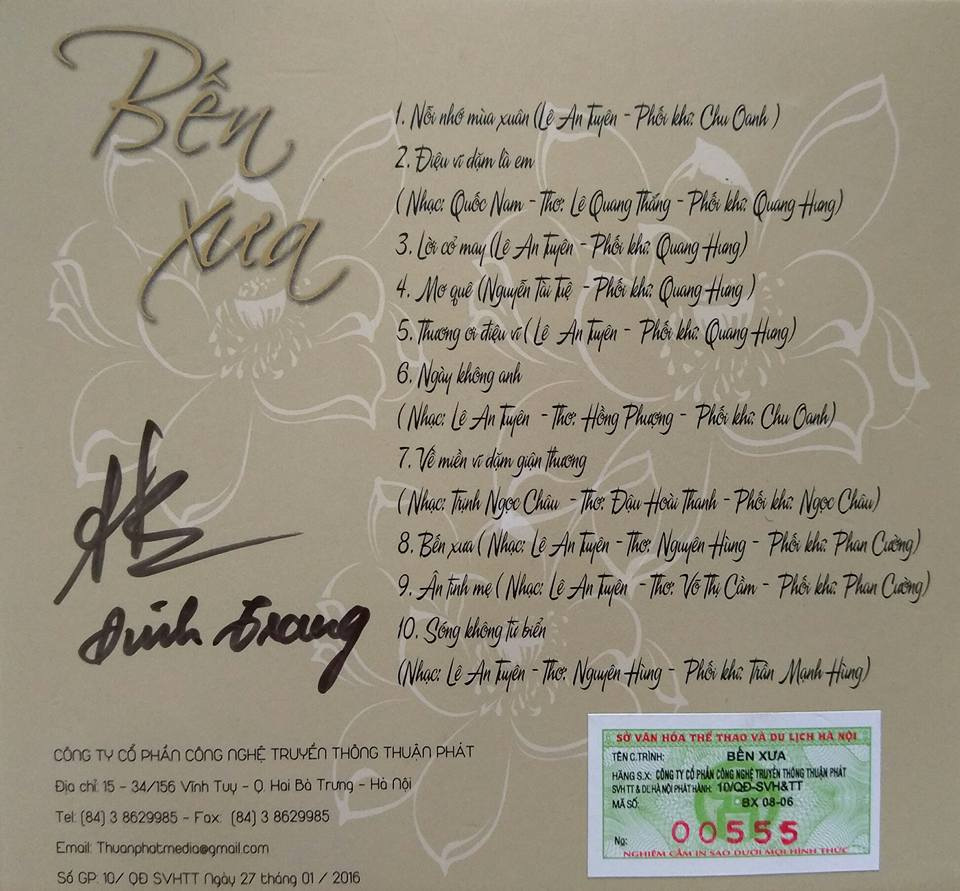 Bến
xưa
1. Nỗi nhớ mùa xuân (Lê An Tuyên - Phối khí: Chu Oanh )
2. Điệu ví dặm là em
( Nhạc: Quốc Nam - Thơ: Lê Quang Thắng - Phối khí: Quang Hưng)
3. Lời cỏ may (Lê An Tuyên - Phối khí: Quang Hưng)
4. Mơ quê (Nguyễn Tài Tuệ - Phối khí: Quang Hưng )
5. Thương ơi điệu ví ( Lê An Tuyên - Phối khí: Quang Hưng)
6. Ngày không anh
( Nhạc: Lê An Tuyên - Thơ: Hồng Phượng - Phối khí: Chu Oanh)
7. Về miền ví dặm giận thương
( Nhạc: Trịnh Ngọc Châu - Thơ: Đậu Hoài Thanh - Phối khí: Ngọc Châu)
8. Bến xưa ( Nhạc: Lê An Tuyên - Thơ: Nguyên Hùng - Phối khí: Phan Cường)
9. Ân tình mẹ ( Nhạc: Lê An Tuyên - Thơ: Võ Thị Cầm - Phối khí: Phan Cường)
10. Sóng không từ biển
(Nhạc: Lê An Tuyên - Thơ: Nguyên Hùng - Phối khí: Trần Mạnh Hùng)
Đinh Trang
CÔNG TY CỔ PHẦN CÔNG NGHỆ TRUYỀN THÔNG THUẬN PHÁT
Địa chỉ: 15 - 34/156 Vĩnh Tuy - Q. Hai Bà Trưng - Hà Nội
Tel: (84) 3 8629985 - Fax: (84) 3 8629985
Email: Thuanphat.media@gmail.com
Số GP: 10/ QĐ SVHTT Ngày 27 tháng 01 / 2016
SỞ VĂN HÓA THỂ THAO VÀ DU LỊCH HÀ NỘI
TÊN C.TRÌNH: BẾN XƯA
HÃNG S.X: CÔNG TY CỔ PHẦN CÔNG NGHỆ TRUYỀN THÔNG THUẬN PHÁT
SVH TT & DL HÀ NỘI PHÁT HÀNH: 10/QĐ-SVH&TT
MÃ SỐ: BX 08-06
Nº: 00555
NGHIÊM CẤM IN SAO DƯỚI MỌI HÌNH THỨC